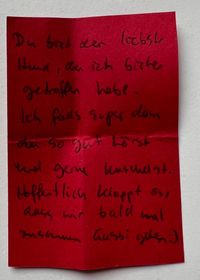 Du bist der liebste
Hund, den ich bisher
getroffen habe.
Ich finds super dass
du so gut hörst
und gerne kuschelst.
Hoffentlich klappt es,
dass wir bald mal
zusammen Gassi gehen :)